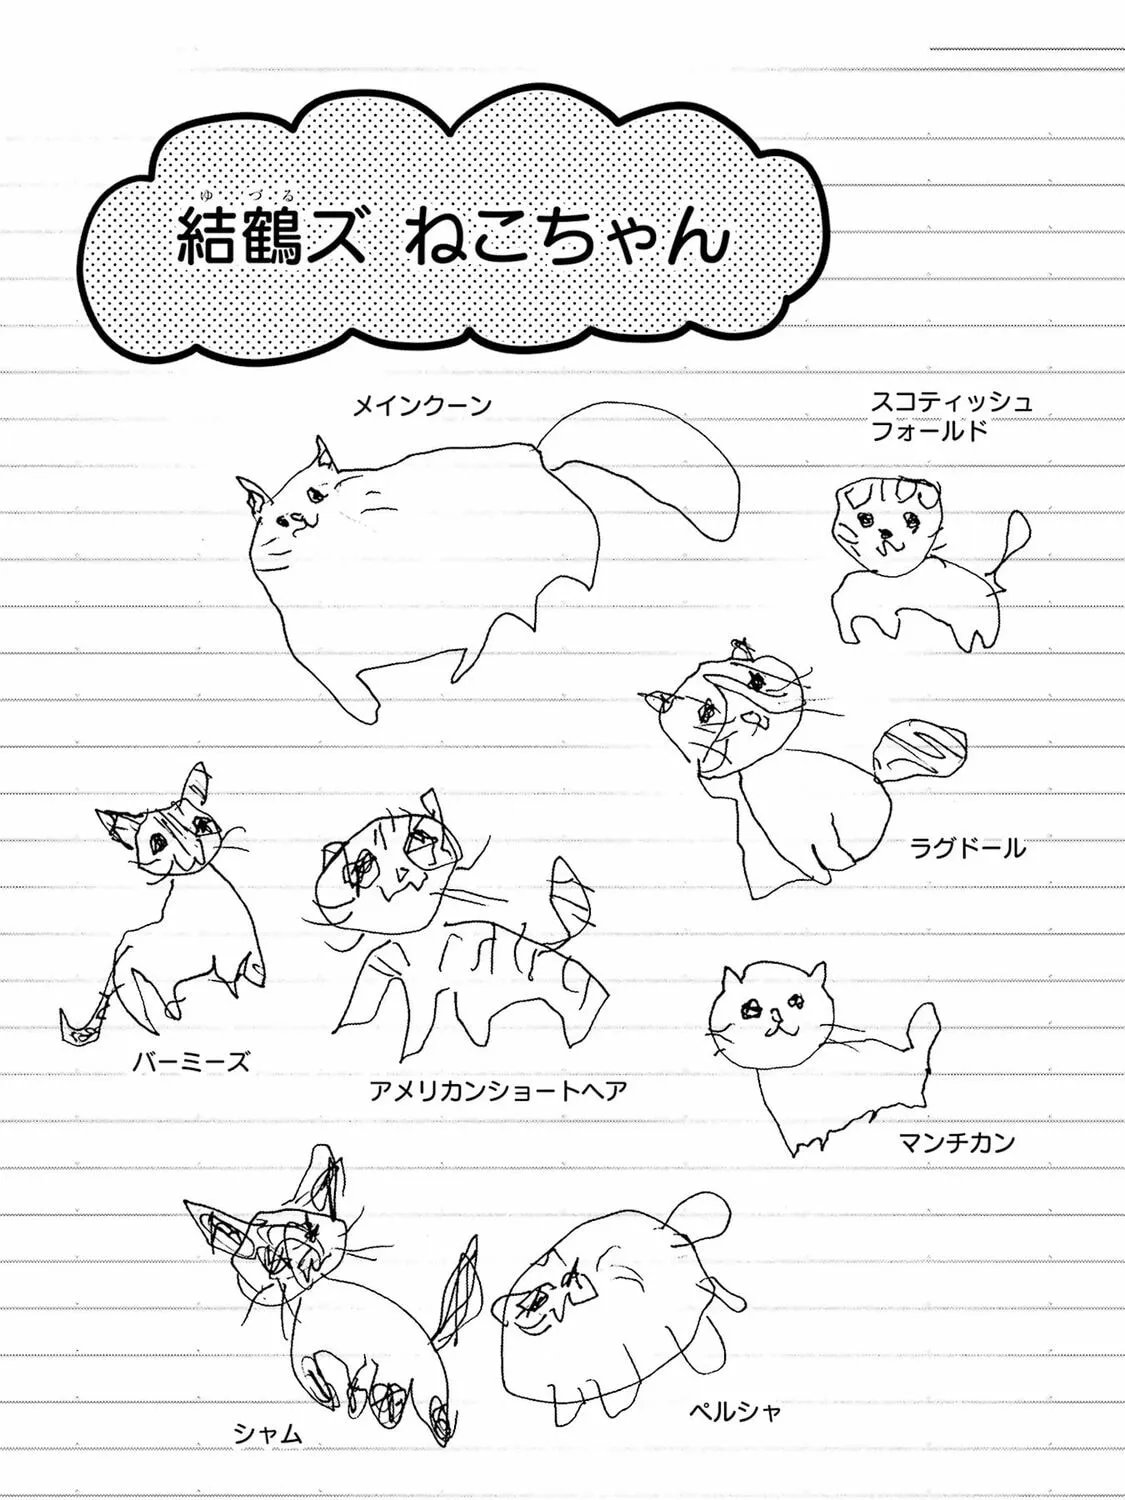 ゆづる
結鶴ズ ねこちゃん
メインクーン
スコティッシュ
フォールド
ラグドール
バーミーズ
アメリカンショートヘア
マンチカン
シャム
ペルシャ